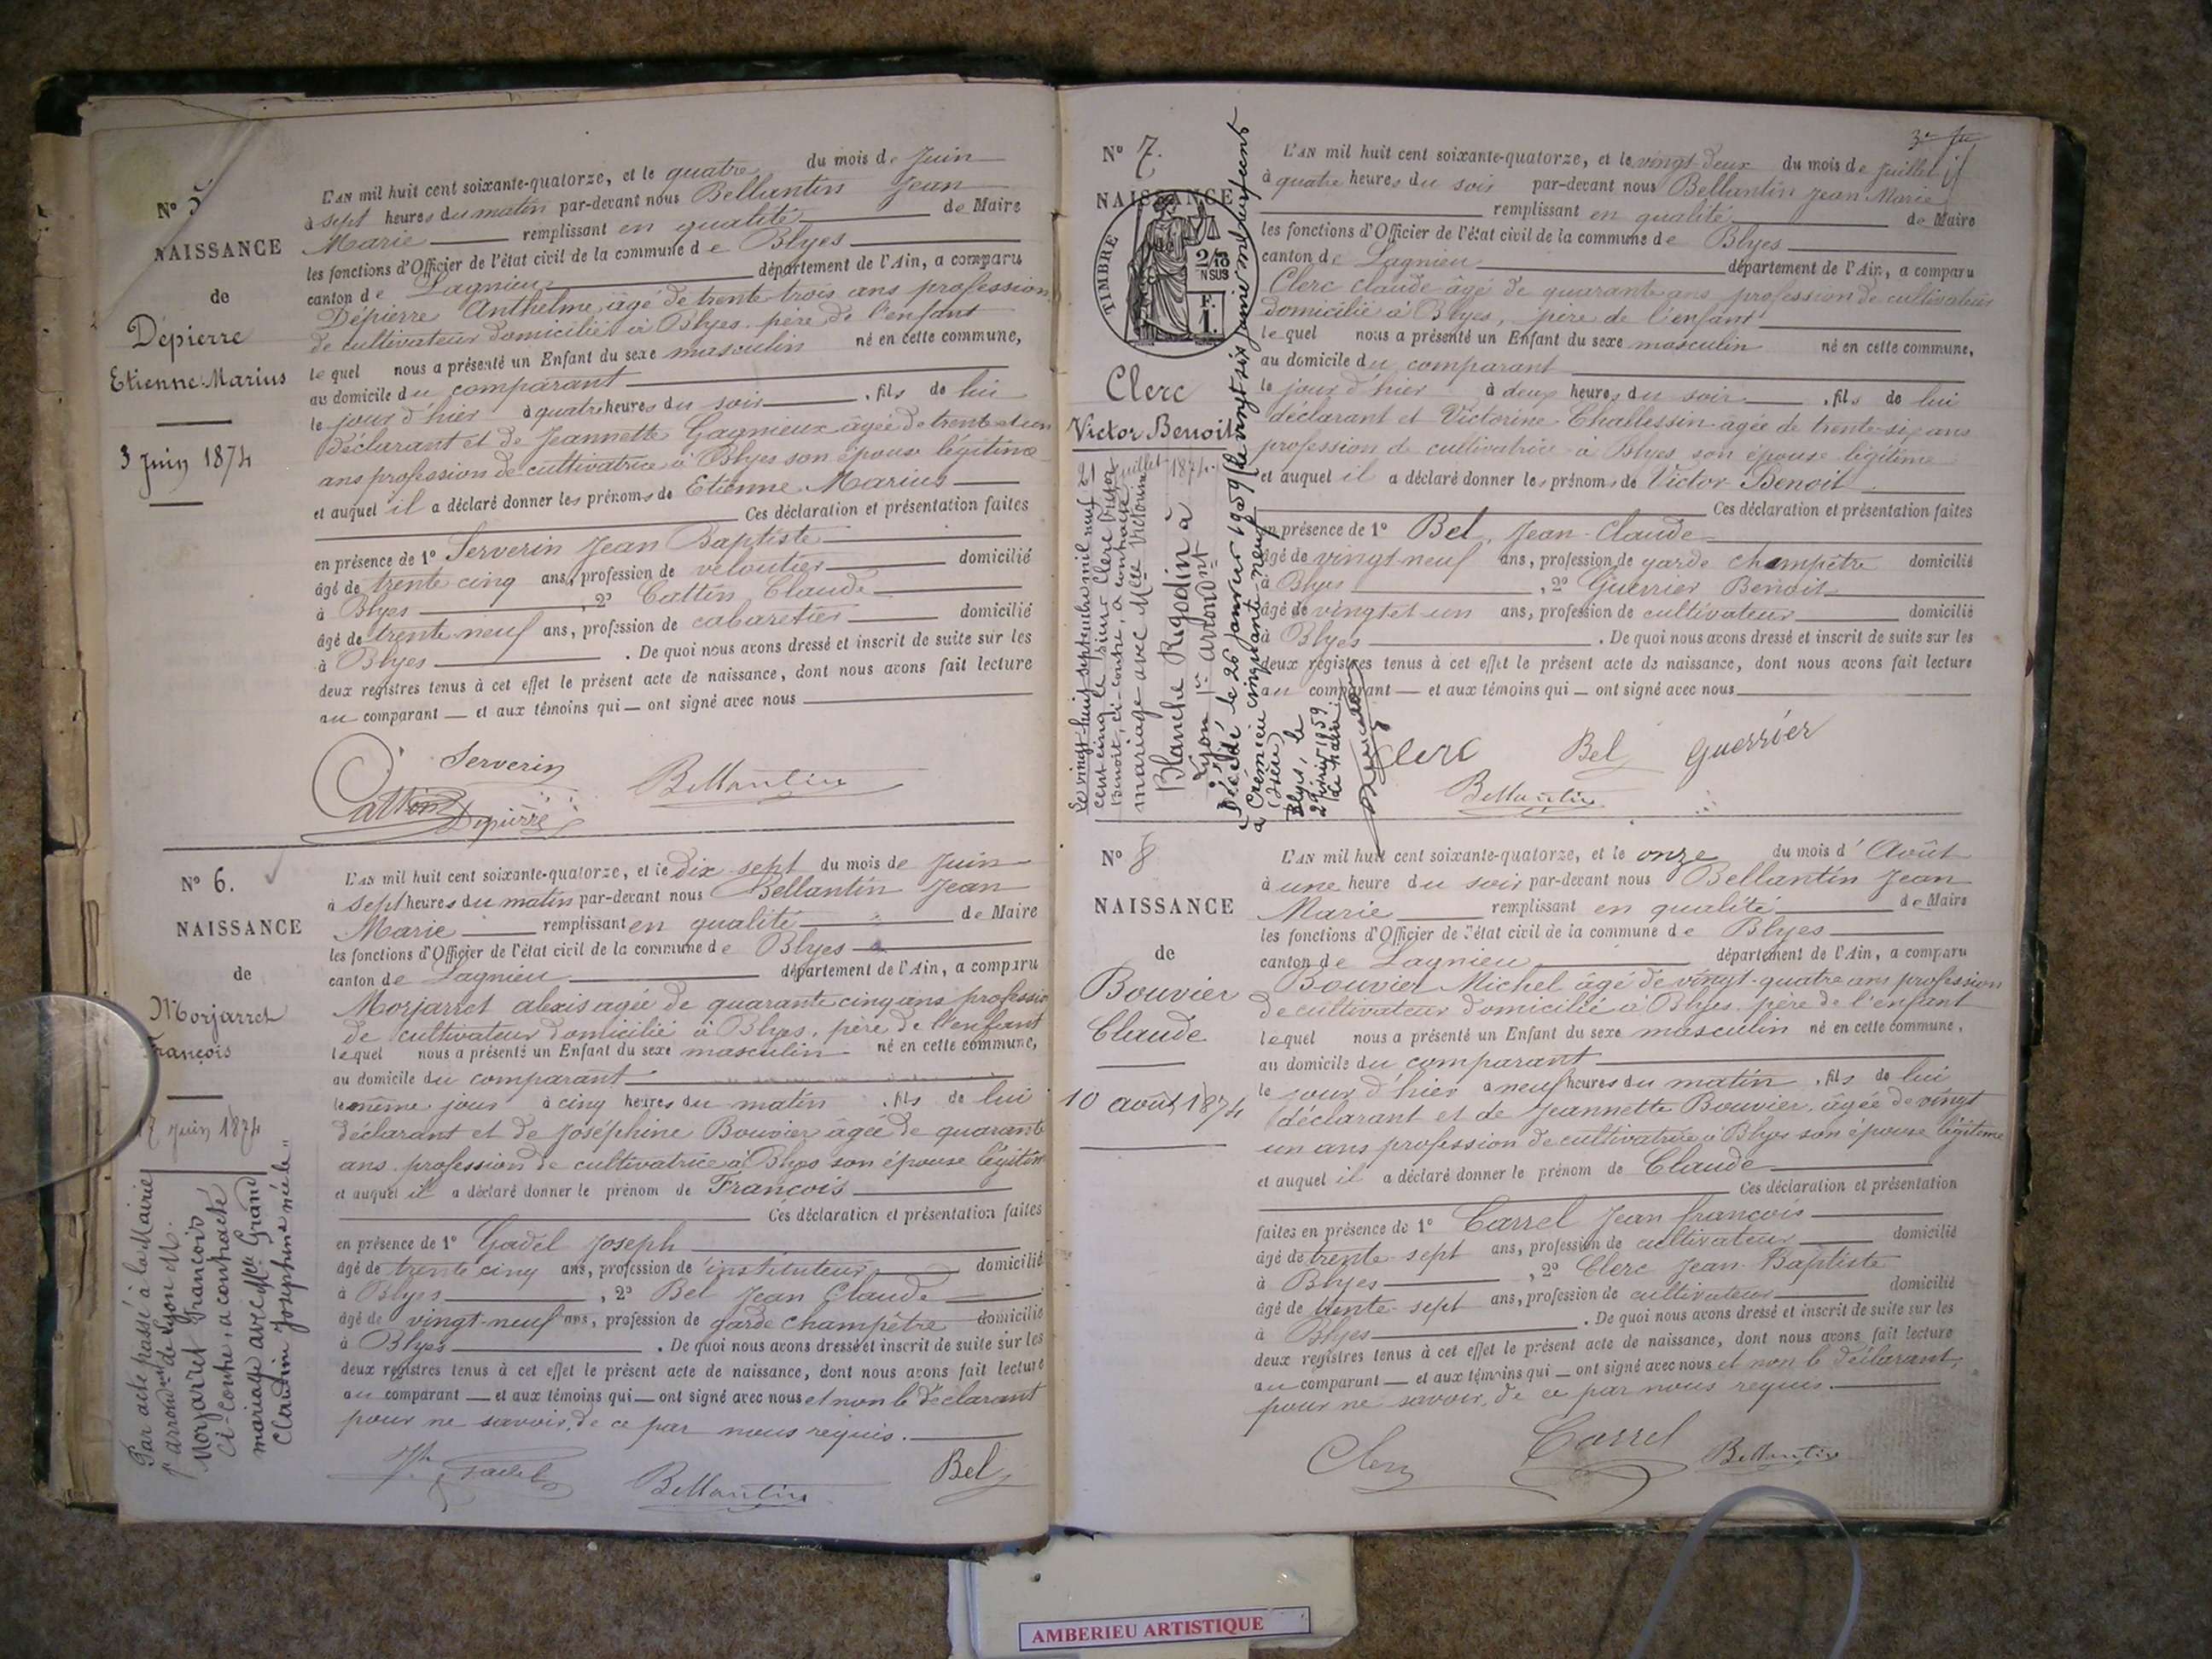 N° 5
NAISSANCE
de
Dépierre
Etienne Marius
3 Juin 1874
L'AN mil huit cent soixante-quatorze, et le quatre du mois de Juin
à sept heures du matin par-devant nous Bellantin Jean
Marie remplissant en qualité de Maire
les fonctions d'Officier de l'état civil de la commune de Blyes
canton de Lagnieu département de l'Ain, a comparu
Dépierre Anthelme âgé de trente trois ans profession
de cultivateur domicilié à Blyes père de l'enfant
lequel nous a présenté un Enfant du sexe masculin né en cette commune,
au domicile du comparant
le jour d'hier à quatre heures du soir, fils de lui
déclarant et de Jeannette Gagnieux âgée de trente et un
ans profession de cultivatrice à Blyes son épouse légitime
et auquel il a déclaré donner les prénoms de Etienne Marius
Ces déclaration et présentation faites
en présence de 1° Serverin Jean Baptiste
âgé de trente cinq ans, profession de veloutier domicilié
à Blyes, 2° Cattin Claude
âgé de trente-neuf ans, profession de cabaretier domicilié
à Blyes. De quoi nous avons dressé et inscrit de suite sur les
deux registres tenus à cet effet le présent acte de naissance, dont nous avons fait lecture
au comparant — et aux témoins qui — ont signé avec nous
Serverin
Cattin Depierre Bellantin
N° 6.
NAISSANCE
de
Morjarret
François
17 Juin 1874
Par acte passé à la Mairie
de Lyon M.
Morjarret François
ci-contre, a contracté
mariage avec Mlle Grand
Claudine Josephine née le "
L'AN mil huit cent soixante-quatorze, et le dix-sept du mois de Juin
à sept heures du matin par-devant nous Bellantin Jean
Marie remplissant en qualité de Maire
les fonctions d'Officier de l'état civil de la commune de Blyes
canton de Lagnieu département de l'Ain, a comparu
Morjarret alexis agée de quarante cinq ans professio
de cultivateur domicilié à Blyes, père de l'enfant
lequel nous a présenté un Enfant du sexe masculin né en cette commune,
au domicile du comparant
le même jour à cinq heures du matin, fils de lui
déclarant et de Joséphine Bouvier âgée de quarante
ans profession de cultivatrice à Blyes son épouse légitim
et auquel il a déclaré donner le prénom de François
Ces déclaration et présentation faites
en présence de 1° Gadel Joseph
âgé de trente cinq ans, profession de instituteur domicilié
à Blyes, 2° Bel Jean Claude
âgé de vingt-neuf ans, profession de garde champêtre domicilié
à Blyes. De quoi nous avons dressé et inscrit de suite sur les
deux registres tenus à cet effet le présent acte de naissance, dont nous avons fait lecture
au comparant — et aux témoins qui — ont signé avec nous et non le déclarant
pour ne savoir, de ce par nous requis.
Jh Gadel Bellantin Bel
N° 7.
NAISSANCE
TIMBRE
2/10
EN SUS
F.
1.
Clerc
Victor Benoit
21 juillet 1874.
Le vingt-huit septembre mil neuf
cent cinq le sieur Clerc Victor
Benoit, ci-contre, a contracté
mariage avec Mlle Victorine
Blanche Rigodin à
Lyon 1er arrondnt
Décédé le 26 janvier 1959 (le vingt six janvier mil neuf cent
cinquante neuf
à Crémieu
(Isère)
Blyes, le
1959
Le Maire
L'AN mil huit cent soixante-quatorze, et le vingt-deux du mois de Juillet
à quatre heures du soir par-devant nous Bellantin Jean Marie
remplissant en qualité de Maire
les fonctions d'Officier de l'état civil de la commune de Blyes
canton de Lagnieu département de l'Ain, a comparu
Clerc Claude âgé de quarante ans profession de cultivateur
domicilié à Blyes, père de l'enfant
lequel nous a présenté un Enfant du sexe masculin né en cette commune,
au domicile du comparant
le jour d'hier à deux heures du soir, fils de lui
déclarant et Victorine Challessin âgée de trente-six ans
profession de cultivatrice à Blyes son épouse légitime
et auquel il a déclaré donner les prénoms de Victor Benoit
Ces déclaration et présentation faites
en présence de 1° Bel, Jean-Claude
âgé de vingt-neuf ans, profession de garde champêtre domicilié
à Blyes, 2° Guerrier Benoit
âgé de vingt et un ans, profession de cultivateur domicilié
à Blyes. De quoi nous avons dressé et inscrit de suite sur les
deux registres tenus à cet effet le présent acte de naissance, dont nous avons fait lecture
au comparant — et aux témoins qui — ont signé avec nous
Clerc Bel Guerrier
Bellantin
N° 8
NAISSANCE
de
Bouvier
Claude
10 août 1874
L'AN mil huit cent soixante-quatorze, et le onze du mois d'Août
à une heure du soir par-devant nous Bellantin Jean
Marie remplissant en qualité de Maire
les fonctions d'Officier de l'état civil de la commune de Blyes
canton de Lagnieu département de l'Ain, a comparu
Bouvier Michel âgé de vingt-quatre ans profession
de cultivateur domicilié à Blyes, père de l'enfant
lequel nous a présenté un Enfant du sexe masculin né en cette commune,
au domicile du comparant
le jour d'hier à neuf heures du matin, fils de lui
déclarant et de Jeannette Bouvier, âgée de vingt
un ans profession de cultivatrice à Blyes son épouse légitime
et auquel il a déclaré donner le prénom de Claude
Ces déclaration et présentation
faites en présence de 1° Carrel Jean françois
âgé de trente-sept ans, profession de cultivateur domicilié
à Blyes, 2° Clerc Jean-Baptiste
âgé de trente-sept ans, profession de cultivateur domicilié
à Blyes. De quoi nous avons dressé et inscrit de suite sur les
deux registres tenus à cet effet le présent acte de naissance, dont nous avons fait lecture
au comparant — et aux témoins qui — ont signé avec nous et non le déclarant,
pour ne savoir, de ce par nous requis.
Clerc Carrel Bellantin
AMBERIEU ARTISTIQUE